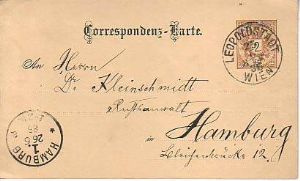 Correspondenz-Karte.
LEOPOLDSTADT
WIEN
An Herrn
Dr Kleinschmitt
Rechtsanwalt
in Hamburg
Bleichenbrücke 12.
HAMBURG
1